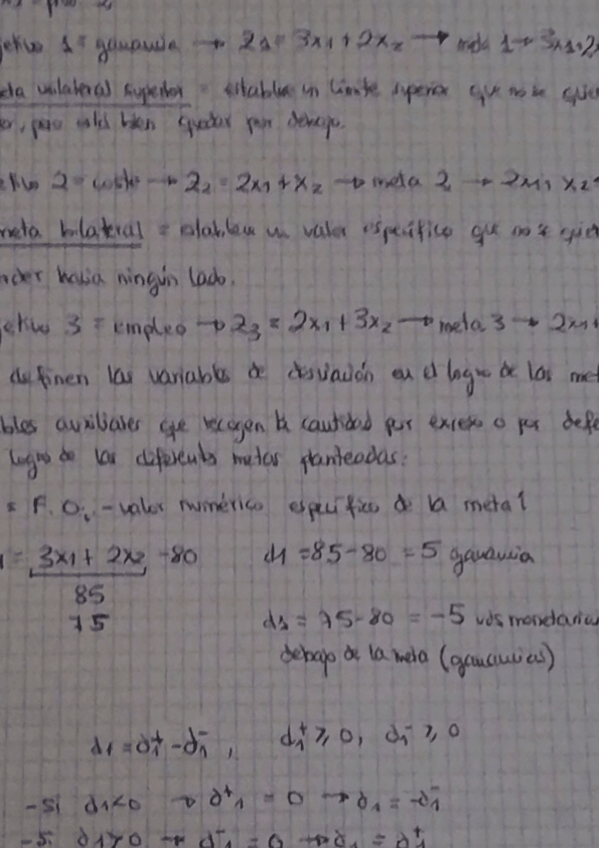 jetivo 1 = ganancia → Z1 = 3x1 + 2x2 → meta 1 → 3x1+2x
eta unilateral superior = establece un límite superior que no se quier
er, pero está bien quedar por debajo.
etivo 2 = coste → Z2 = 2x1 + x2 → meta 2 → 2x1 x2
meta bilateral = establece un valor específico que no se quier
nder hacia ningún lado.
jetivo 3 = empleo → Z3 = 2x1 + 3x2 → meta 3 → 2x1
definen las variables de desviación en el logro de las met
bles auxiliares que recogen la cantidad por exceso o por defe
logro de las diferentes metas planteadas:
= F.Oi - valor numérico específico de la meta 1
1 = 3x1 + 2x2 - 80 d1 = 85 - 80 = 5 ganancia
85
75 d1 = 75 - 80 = -5 uds monetarias
debajo de la meta (ganancias)
d1 = d1+ - d1-, d1+ ≥ 0, d1- ≥ 0
- si d1<0 → d+1 = 0 → d1 = -d1-
- si d1>0 → d1- = 0 → d1 = d1+